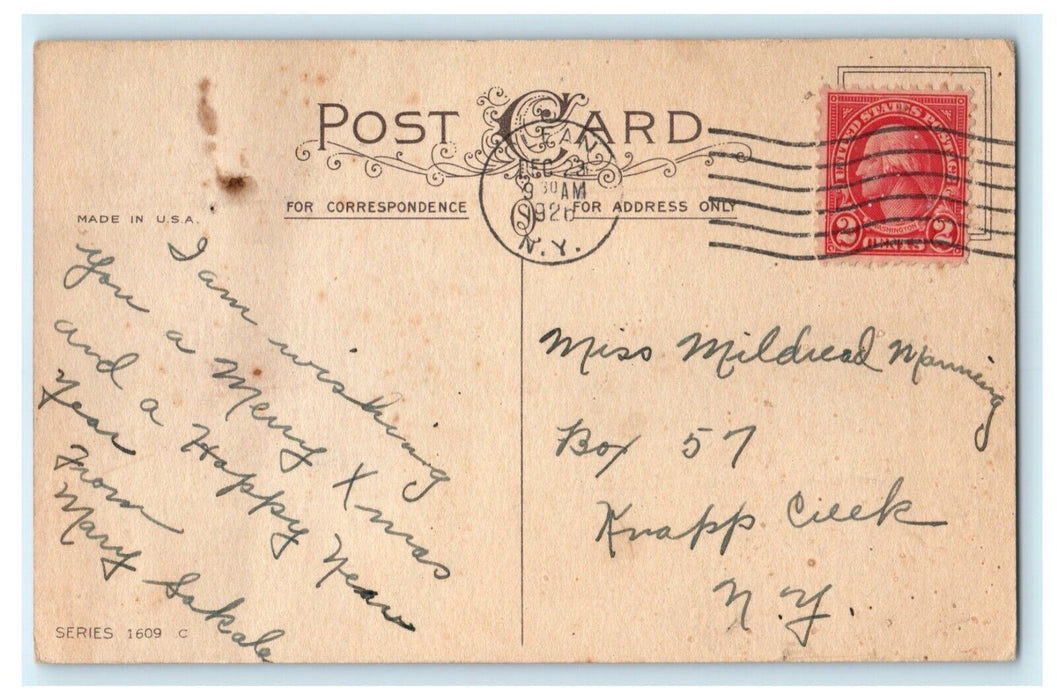 POST CARD
OLEAN
DEC 23
9 30 AM
1926
N.Y.
UNITED STATES POSTAGE
WASHINGTON
2 CENTS 2
MADE IN U.S.A.
FOR CORRESPONDENCE
FOR ADDRESS ONLY
I am wishing
you a Merry Xmas
and a Happy New
Year
From
Mary Sakala
Miss Mildread Manning
Box 57
Knapp Creek
N.Y.
SERIES 1609 C